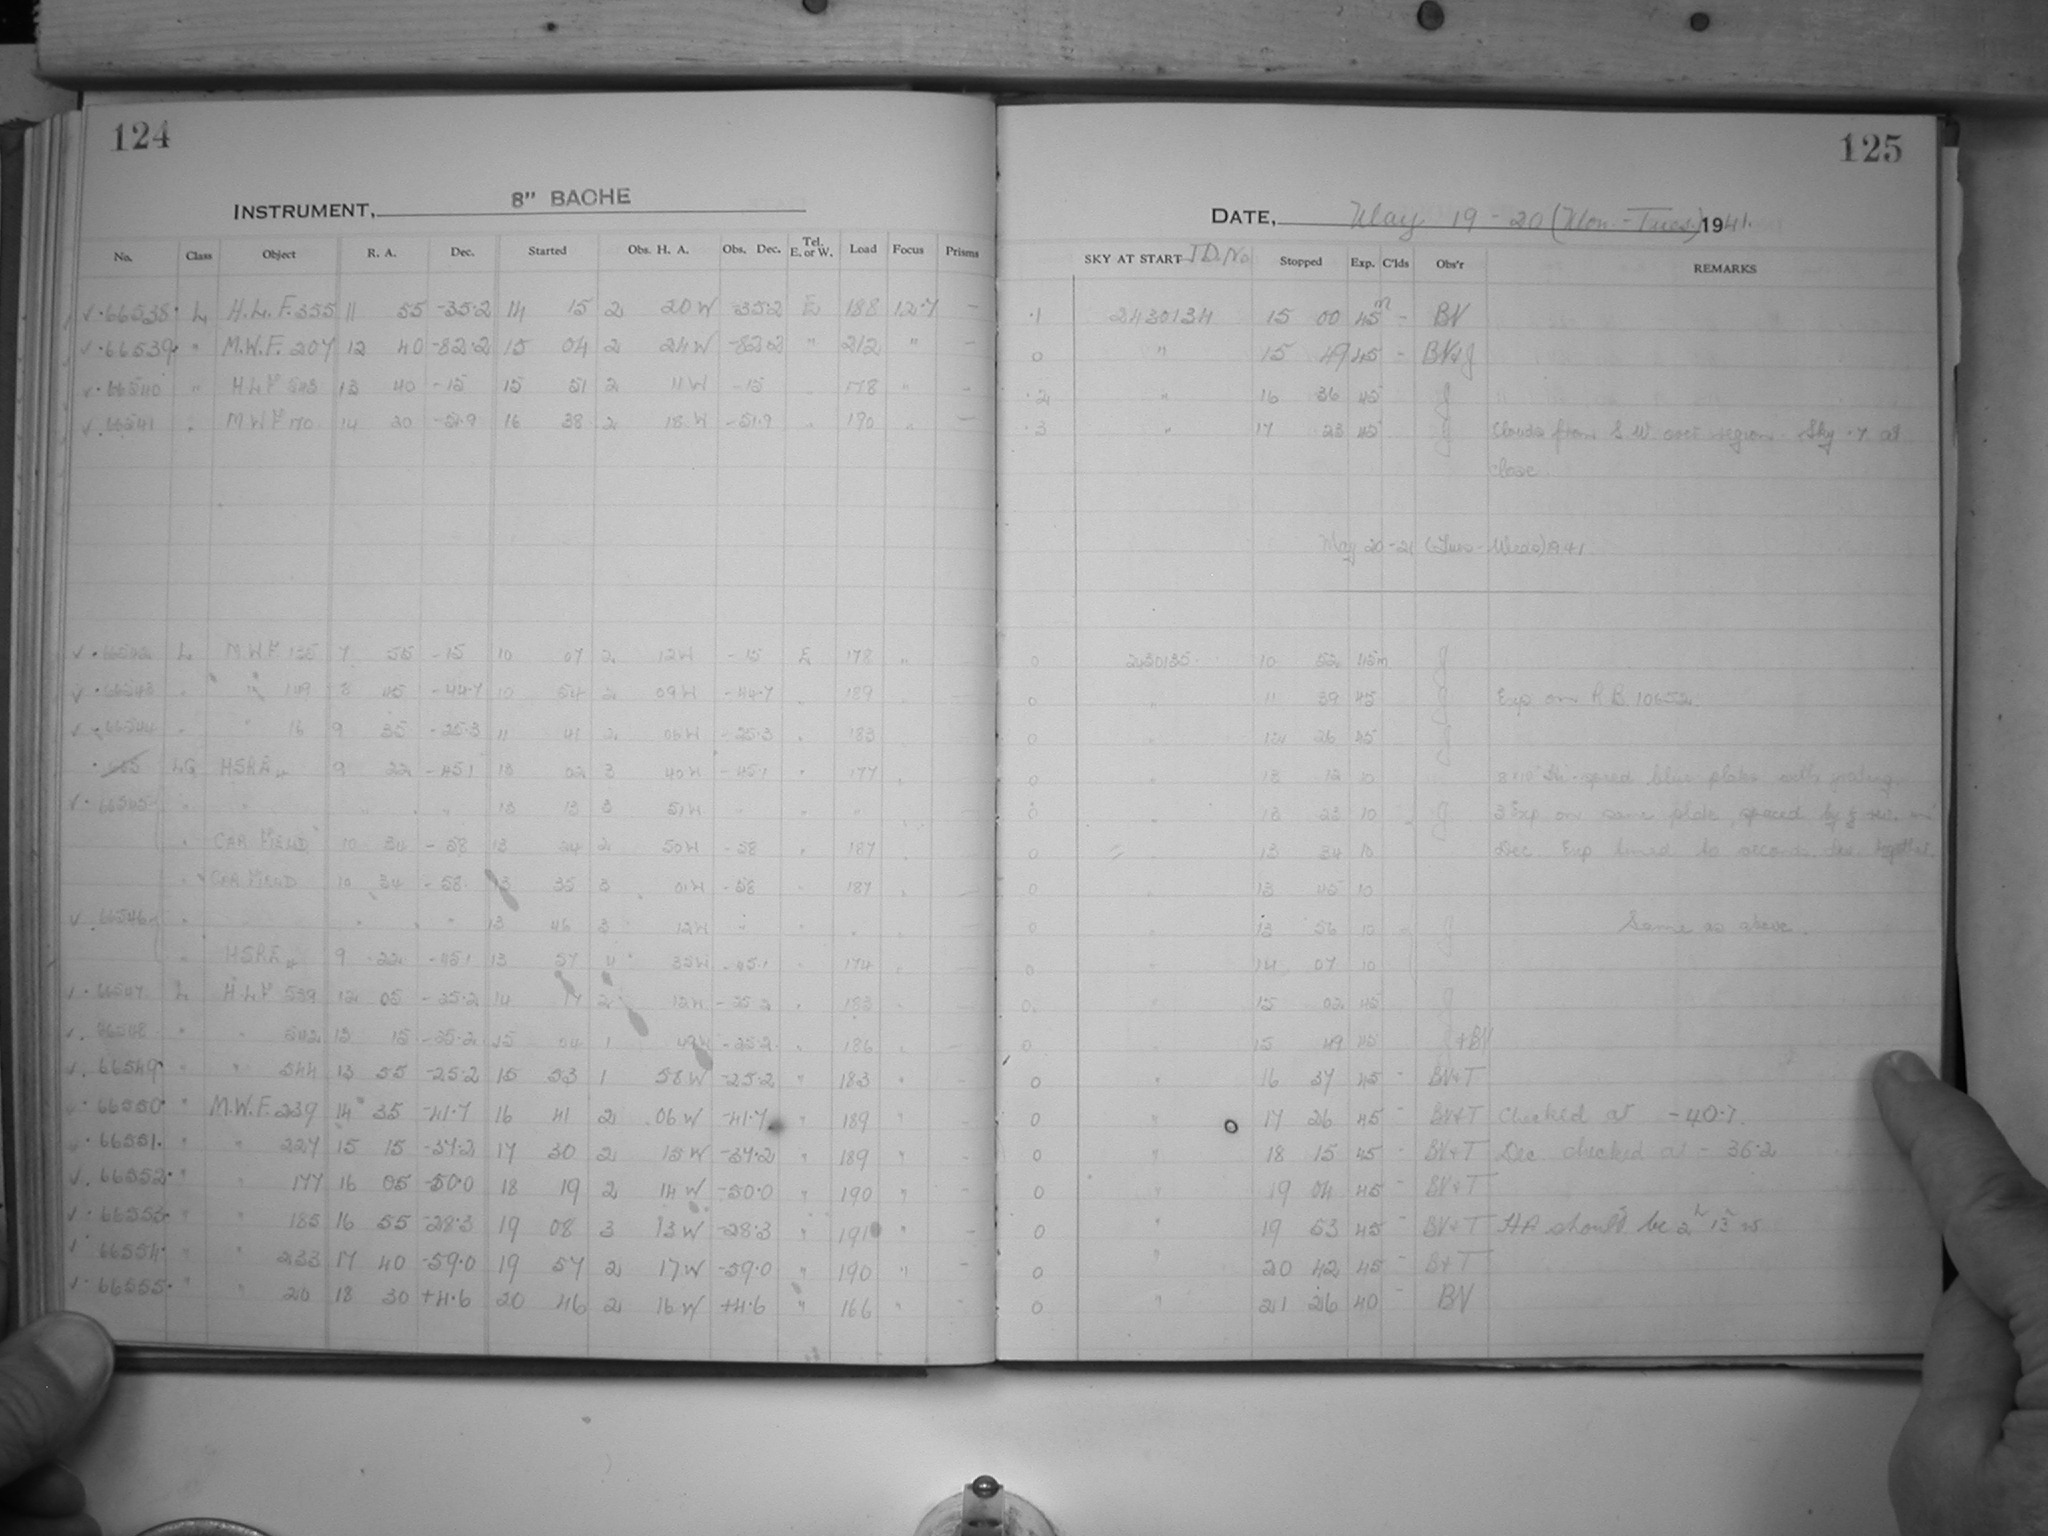 124
INSTRUMENT, 8" BACHE
No. Class Object R. A. Dec. Started Obs. H. A. Obs. Dec. Tel. E. or W. Load Focus Prisms
✓ · 66538 · L H.L.F. 355 11 55 -35·2 14 15 2 20 W -35·2 E 188 12·7 —
✓ · 66539 · " M.W.F. 207 12 40 -82·2 15 04 2 24 W -82·2 " 212 " —
✓ · 66540 " H L F 13 40 -15 15 51 2 11 W -15 178 " —
✓ · 66541 " M W F 170 14 20 -51·9 16 38 2 18 W -51·9 " 190 " —
✓ · 66542 L M.W.F. 7 55 -15 10 07 2 12 W -15 E 178 "
✓ · 66543 " " 149 8 45 -44·7 10 54 2 09 W -44·7 " 189
✓ · 66544 " " 16 9 35 -25·3 11 41 2 06 W -25·3 " 183
LG HSRE 9 22 -45·1 13 02 3 40 W -45·1 " 177
✓ · 66545 " " " " " 13 13 3 51 W " " "
" CAR FIELD 10 34 -58 13 24 2 50 W -58 187
" CAR FIELD 10 34 -58 13 35 3 01 W -58 187
✓ · 66546 " " " 13 46 3 12 W " " "
" HSRE 9 22 -45·1 13 57 4 35 W -45·1 174
✓ · 66547 L H L F 539 12 05 -25·2 14 17 2 12 W -25·2 " 183
✓ · 66548 " " 542 13 15 -25·2 15 04 1 49 W -25·2 " 186 —
✓ · 66549 " " 544 13 55 -25·2 15 53 1 58 W -25·2 " 183 " —
66550 " M.W.F. 239 14 35 -41·7 16 41 2 06 W -41·7 189 " —
· 66551 · " " 227 15 15 -37·2 17 30 2 15 W -37·2 " 189 " —
✓ · 66552 · " " 177 16 05 -50·0 18 19 2 14 W -50·0 " 190 " —
✓ · 66553 · " " 185 16 55 -28·3 19 08 3 13 W -28·3 " 191 —
✓ · 66554 · " " 233 17 40 -59·0 19 57 2 17 W -59·0 " 190 " —
✓ · 66555 · " 20 18 30 +4·6 20 46 2 16 W +4·6 " 166 " —
125
DATE, May 19-20 (Mon.-Tues.) 1941.
SKY AT START J.D. No. Stopped Exp. C'lds Obs'r REMARKS
·1 2430134 15 00 45m - BV
0 " 15 49 45 - BV & J
·2 " 16 36 45 J
·3 " 17 23 45 J Clouds from S W over region. Sky ·7 at
close.
May 20-21 (Tues-Weds) 1941
0 2430135 10 52 45m J
0 " 11 39 45 J Exp on R B 10652.
0 " 12 26 45 J
0 " 13 12 10 8x10 Hi-speed blue plates with grating
0 " 13 23 10 J 3 Exp on same plate, spaced by
0 " 13 34 10 Dec. Exp timed to seconds
0 13 45 10
0 " 13 56 10 J Same as above.
0 " 14 07 10
0 " 15 02 45 J
0 15 49 45 +BV
0 " 16 37 45 - BV+T
0 " 17 26 45 - BV&T Checked at -40·7
0 " 18 15 45 - BV+T Dec checked at - 36·2
0 " 19 04 45 - BV+T
0 " 19 53 45 - BV&T HA should be 2h 13m W
0 " 20 42 45 - B+T
0 " 21 26 40 - BV